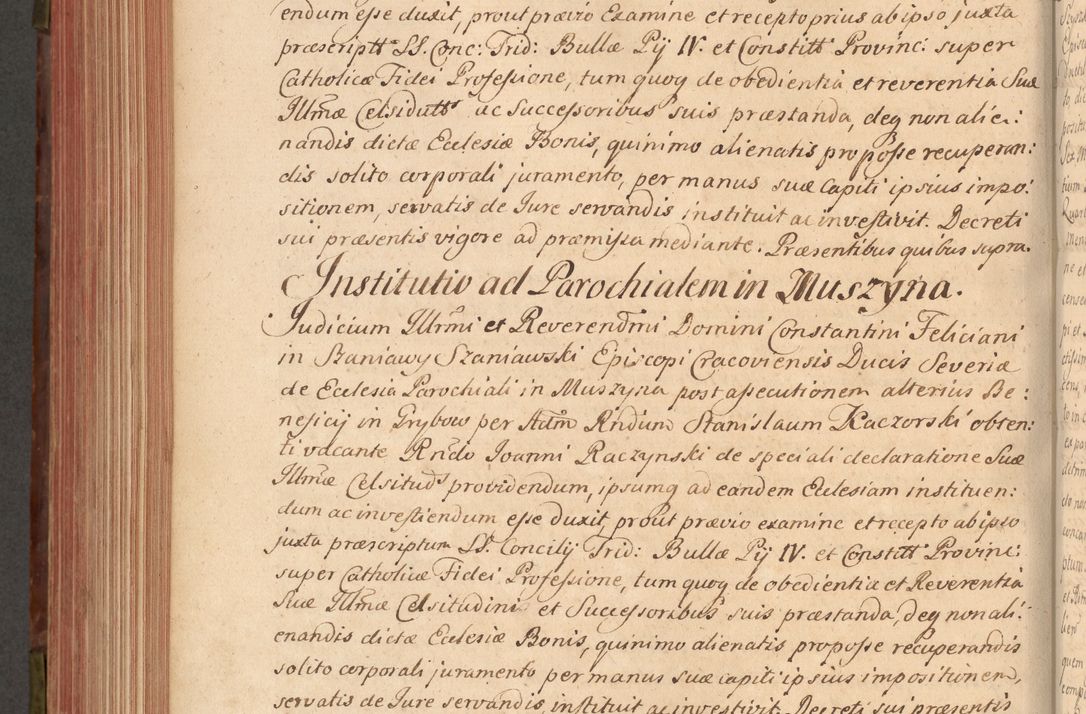 endum eſse duxit, prout prævio Examine et recepto prius ab ipso juxta
præscriptt SS. Conc: Trid: Bullæ Pij IV. et Constitt Provinc: super
Catholicæ Fidei Profeſsione, tum quoq de obedientia et reverentia Suæ
Illmæ Celsidutts ac Succeſsoribus suis præstanda, deq non alie:
nandis dictæ Eclesiæ Bonis, quinimo alienatis pro poſse recuperan:
dis solito corporali juramento, per manus suæ Capiti ipsius impo:
sitionem, servatis de Jure servandis instituit ac investivit. Decreti
sui præsentis vigore ad præmiſsa mediante. Præsentibus quibus supra.
Institutio ad Parochialem in Muszyna.
Judicium Illrmi et Reverendmi Domini Constantini Feliciani
in Szaniawy Szaniawski Episcopi Cracoviensis Ducis Severiæ
de Ecclesia Parochiali in Muszyna post aſsecutionem alterius Be:
neficij in Grybow per Adm Rndum Stanislaum Kaczorski obten:
ti vacante Rndo Joanni Raczynski de speciali declaratione Suæ
Illmæ Celsituds providendum, ipsumq ad eandem Eclesiam instituen:
dum ac investiendum eſse duxit, prout prævio examine et recepto ab ipso
juxta præscriptum SS. Concilij Trid: Bullæ Pij IV. et Constitt Provinc:
super Catholicæ Fidei Profeſsione, tum quoq de obedientia et Reverentia
Suæ Illmæ Celsitudini et Succeſsoribus suis præstanda, deq non ali:
enandis dictæ Eclesiæ Bonis, quinimo alienatis propoſse recuperandis
solito corporali juramento per manus suæ capiti ipsius impositionem,
servatis de Jure servandis, instituit ac investivit. Decreti sui præsentis